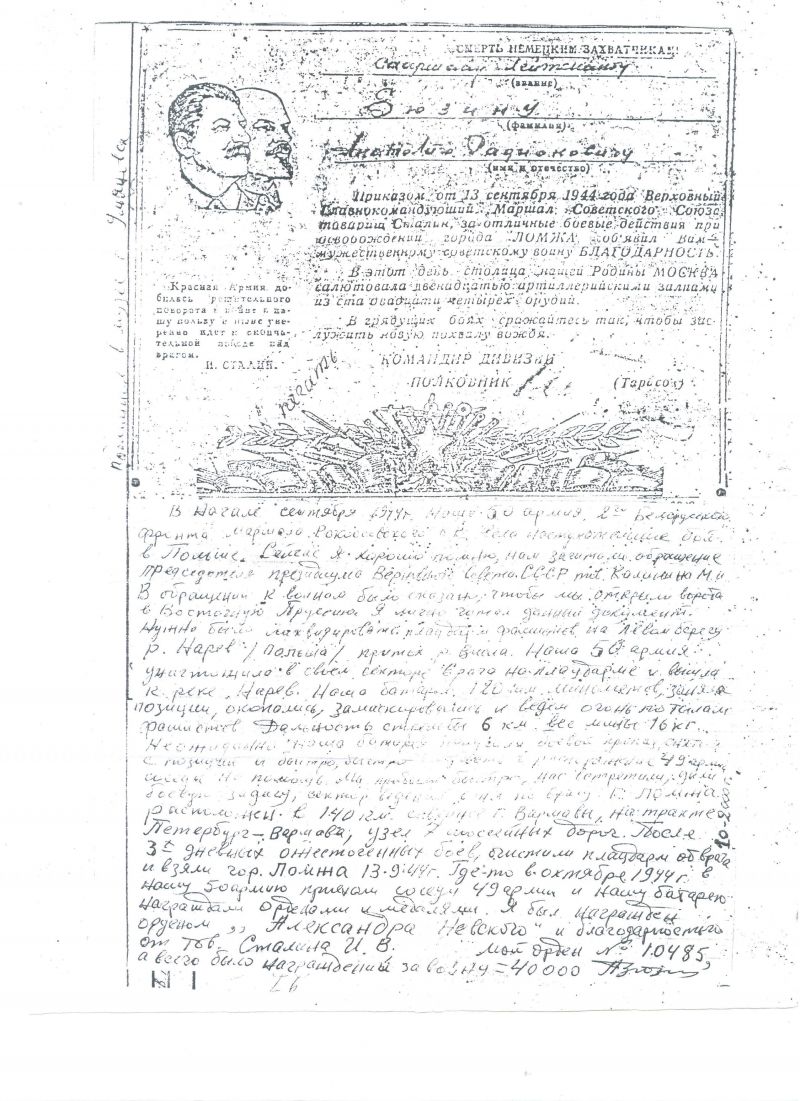 СМЕРТЬ НЕМЕЦКИМ ЗАХВАТЧИКАМ!
Старшему Лейтенанту
(звание)
Зюзину
(фамилия)
Анатолию Радионовичу
(имя и отчество)
Приказом от 13 сентября 1944 года Верховный
Главнокомандующий Маршал Советского Союза
товарищ Сталин, за отличные боевые действия при
освобождении города ЛОМЖА об'явил Вам—
мужественному советскому воину БЛАГОДАРНОСТЬ.
В этот день столица нашей Родины МОСКВА
салютовала двенадцатью артиллерийскими залпами
из ста двадцати четырех орудий.
В грядущих боях сражайтесь так, чтобы зас-
лужить новую похвалу вождя.
КОМАНДИР ДИВИЗИИ
ПОЛКОВНИК (Тарасов)
Красная Армия до-
билась решительного
поворота в войне в на-
шу пользу и ныне уве-
ренно идет к оконча-
тельной победе над
врагом.
И. СТАЛИН.
в музее
В Начале сентября 1944г наша 50 армия, 2го Белорусского
фронта маршала Рокоссовского К.К. вела наступательные бои
в Польше. Я хорошо помню, нам зачитали обращение
председателя президиума Верховного Совета СССР тов. Калинина М.И
В обращении к воинам было сказано, чтобы мы открыли ворота
в Восточную Пруссию. Я лично читал данный документ.
Нужно было ликвидировать плацдарм фашистов на левом берегу
р. Нарев /Польша/ приток р. Висла. Наша 50 армия
уничтожила в своем секторе врага на плацдарме и вышла
к реке Нарев. Наша батарея 120 мм. минометов, заняла
позиции, окопались, замаскировались и ведем огонь по тылам
фашистов. Дальность стрельбы 6 км. вес мины 16 кг.
Неожиданно наша батарея получила боевой приказ, сняться
с позиций и быстро, быстро в распоряжение 49 армии
соседи на помощь. Мы прибыли быстро, нас встретили, дали
боевую задачу, сектор ведения огня по врагу. Г. Ломжа
расположен в 140 км. г. Варшавы, на тракте
Петербург – Варшава, узел 7 шоссейных дорог. После
3х дневных ожесточенных боев, очистили плацдарм от врага
и взяли гор. Ломжа 13-9-44г. Где-то в октябре 1944г. в
нашу 50 армию приехали соседи 49 армии и нашу батарею
наградили орденами и медалями. Я был награжден
орденом „Александра Невского" и благодарностью
от Тов. Сталина И. В. мой орден № 10485,
а всего было награждений за войну = 40000